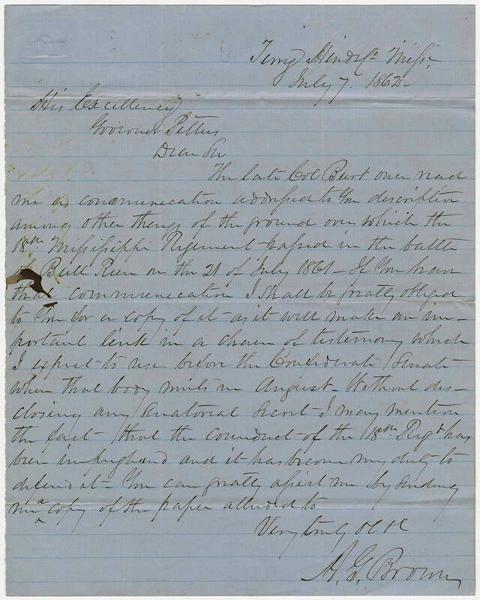 Terry Hinds Co Missi
July 7. 1862-
His Excellency
Governor Pettus
Dear Sir
The late Col Burt once read
me a communication addressed to you descriptive
among other things of the ground over which the
18th Mississippi Regiment passed in the battle
Bull Run on the 21 of July 1861- If you have
that communication I shall be greatly obliged
to you for a copy of it- as it will make an im-
portant link in a chain of testimony which
I expect to use before the Confederate Senate
when that body meets in August. Without dis-
closing any Senatorial secret I may mention
the fact- that the counduct of the 18th Regt has
been impugned and it has become my duty to
defend it- You can greatly assist me by sending
me a copy of the paper alluded to
Very truly
A. G. Brown